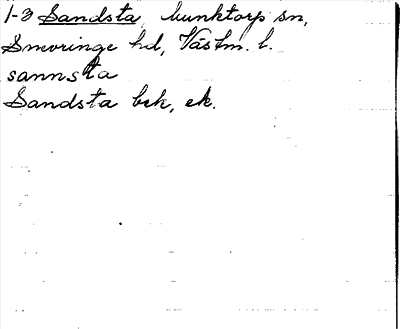 1-3 Sandsta, Munktorp sn,
Snevringe hd, Västm. l.
sannsta
Sandsta bek, ek.